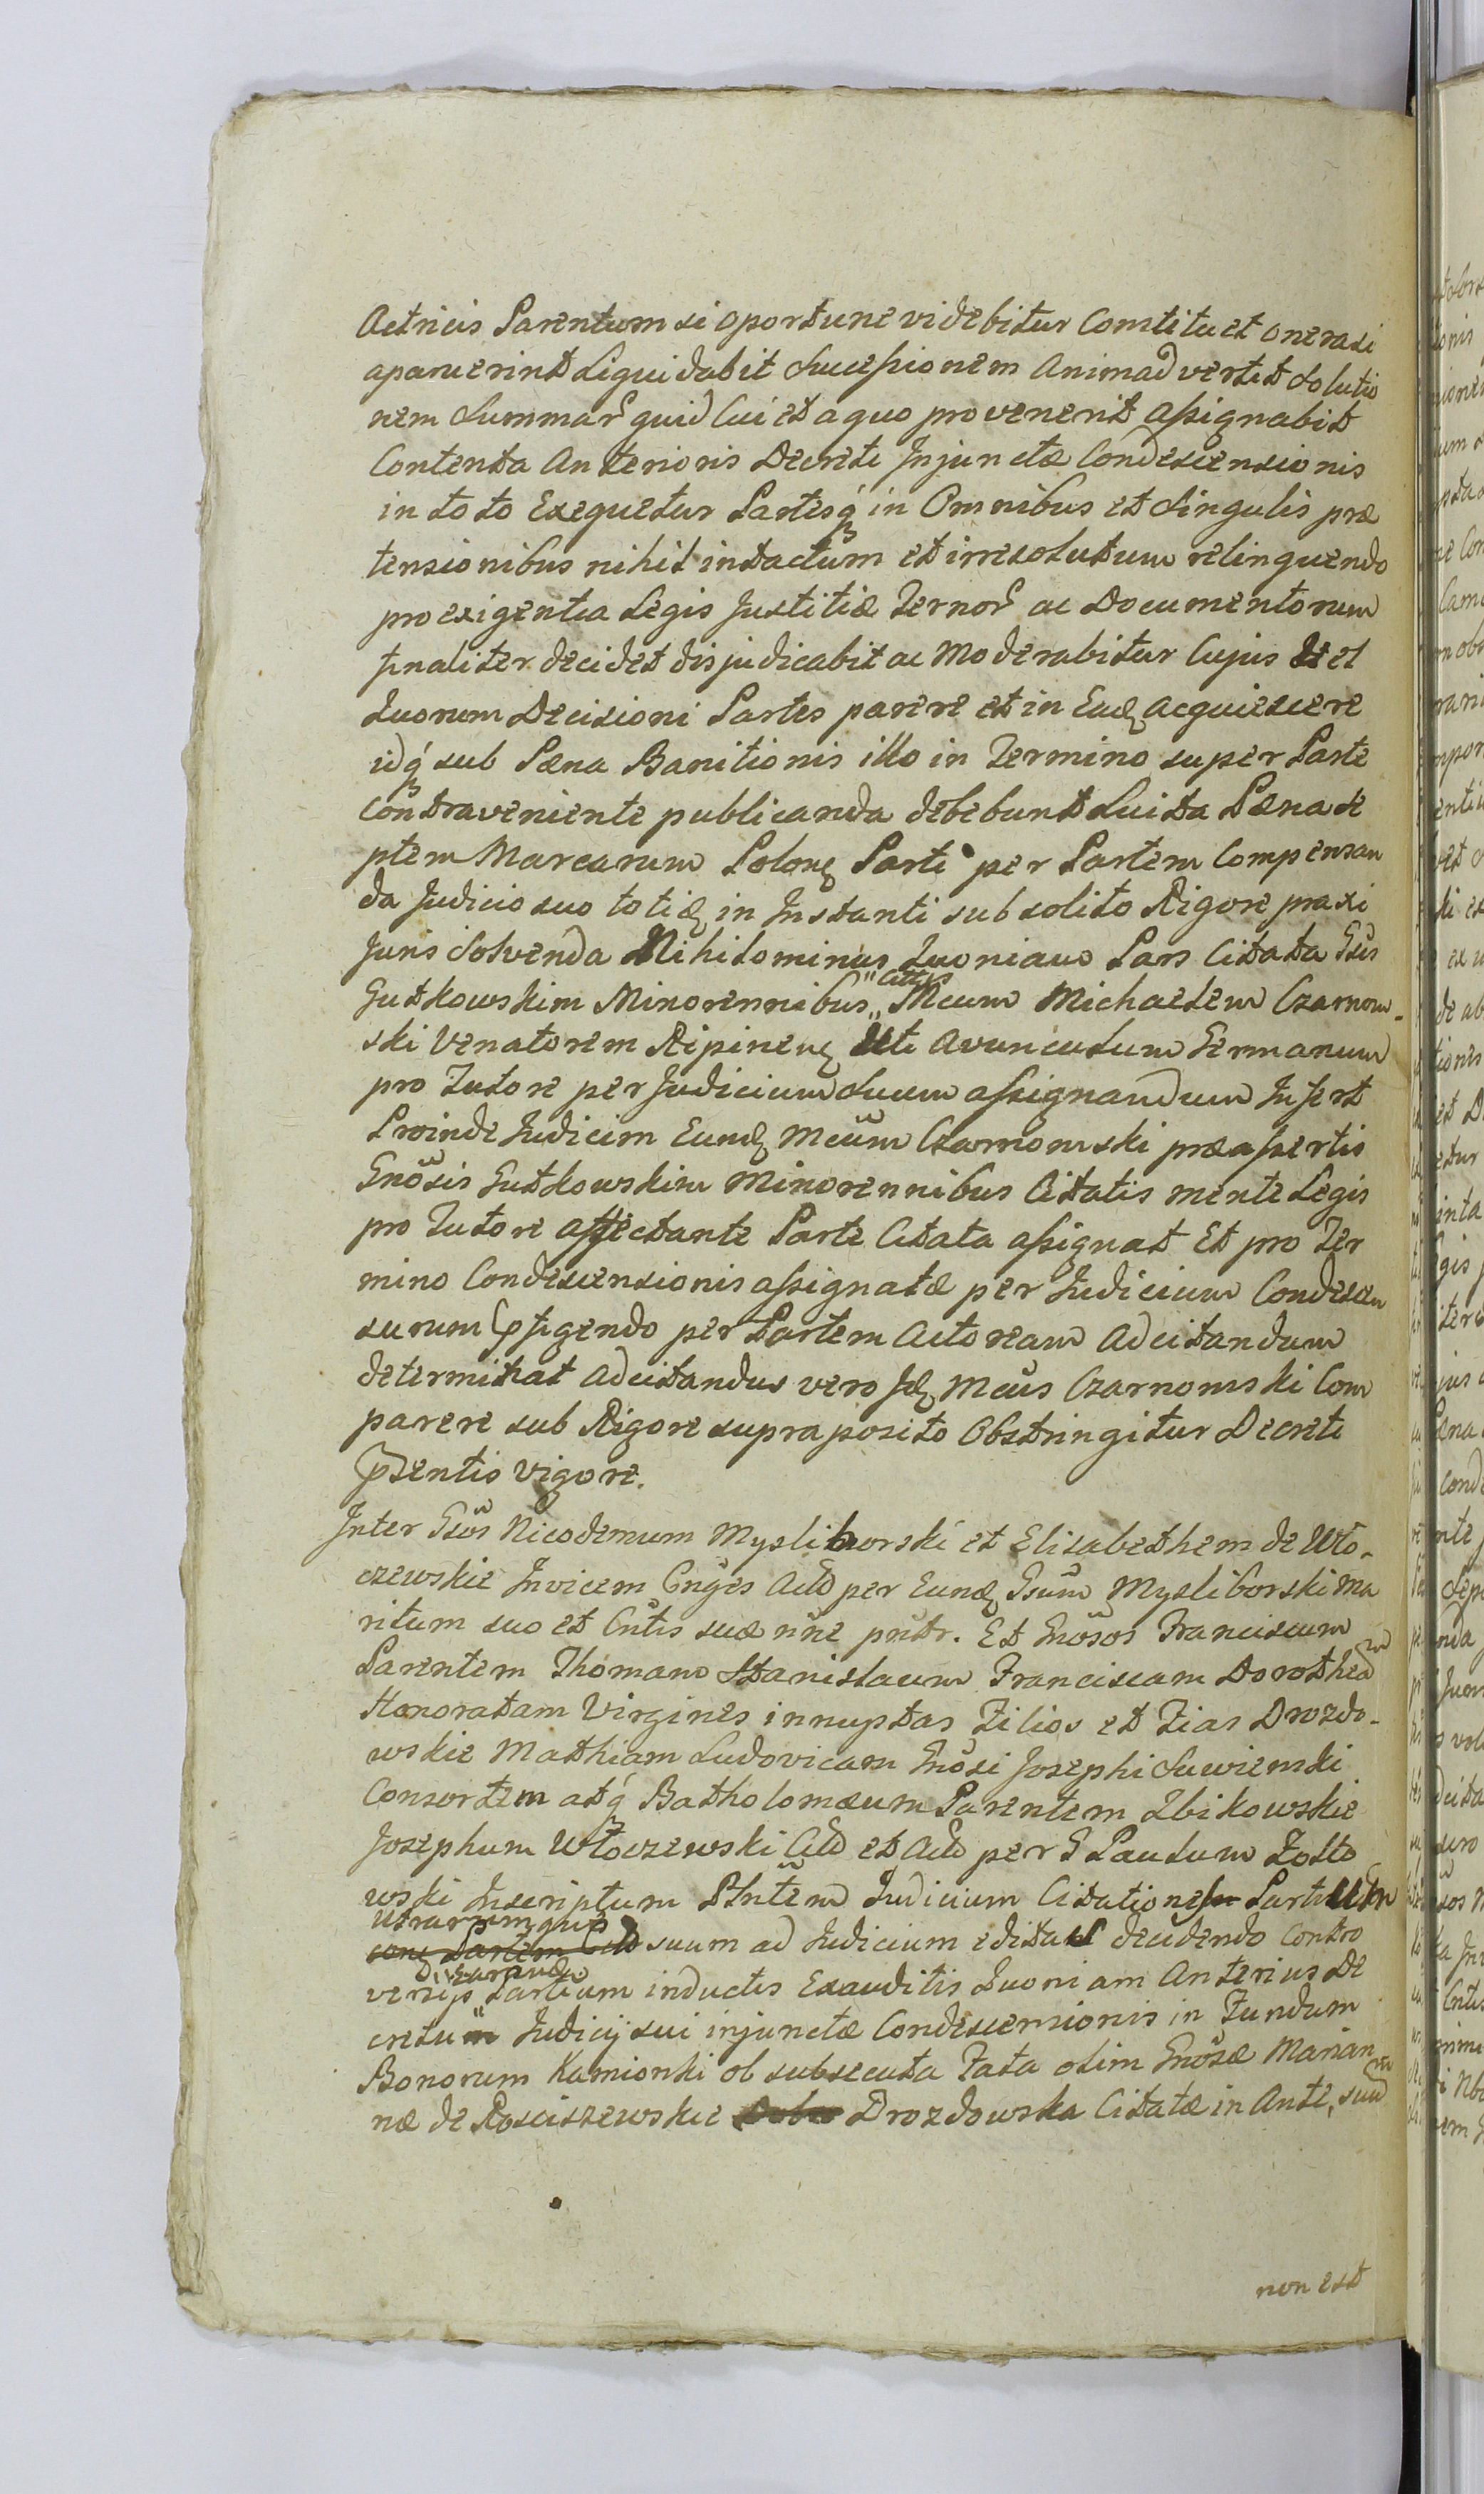 Actricis Parentum si oportune videbitur Comtituet onerasi
aparuerint Liquidabit Sucessionem Animadvertet Solutio
nem Summar quid Cui et a quo provenerit assignabit
Contenta Anterioris Decreti Injunctæ Condescensionis
in toto Exequetur Partesq in Omnibus et Singulis præ
tensionibus nihil intactum et irresolutum relinquendo
pro exigentia Legis Justitiæ Ternor ac Documentorum
finaliter decidet disjudicabit ac Moderabitur Cujus et
Quorum Decisioni Partes parere et in Eadq Acquiescere
idq sub Pæna Banitionis illo in Termino super Parte
Contraveniente publicanda debebunt Luita Pæna se
ptem Marcarum Polonq Parti per Partem Compensan
da Judicio suo totiq in Instanti sub solito Rigore praxi
Juris Solvenda Nihilominus Quoniam Pars Citata Gsis
Gutkowskim Minorennibus Cittis Mcum Michaelem Czarnom-
ski Venatorem Ripinenq Uti Avunculum Germanum
pro Tutore per Judicium Suum assignandum Infert
Proinde Judicium Eundq Mcum Czarnomski præassertis
Gnosis Gutkowskim Minorennibus Citatis mente Legis
pro Tutore affectante Parte Citata assignat Et pro Ter
mino Condescensionis assignatæ per Judicium Condescen
surum pfigendo per Partem Actoream Adcitandum
determinat Adcitandus vero Idq Mcus Czarnomski Com
parere sub Rigore supra posito Obstringitur Decreti
pzentis vigore.
Inter Gsos Nicodemum Mysliborski et Elisabethem de Wło-
czewskie Invicem Cnges Acto per Eundq Gsum Mysliborski Ma
ritum suo et Cntis suæ nne pnttr. Et Gnosos Franciscum
Parentem Thomam Stanislaum Franciscam Dorotheam
Honoratam Virgines innuptas Filios et Fias Drozdo-
wskie Mathiam Ludovicam Gnosi Josephi Suwienski
Consortem atq Batholomæum Parentem Zbikowskie
Josephum Włoczewski Citt et Acto per G Paulum Zolto
wski Inscriptum Plntem Judicium Citatione Partium
utrarumque suum ad Judicium edita decidendo Contro
versijs earundq Partium inductis Exauditis Quoniam Anterius De
cretum Judicij sui injunctæ Condescensionis in Fundum
Bonorum Kamionki ob subsecuta Fata olim Gnosæ Marian
næ de Rosciszewskie Drozdowska Citatæ in Ante, suum
non est